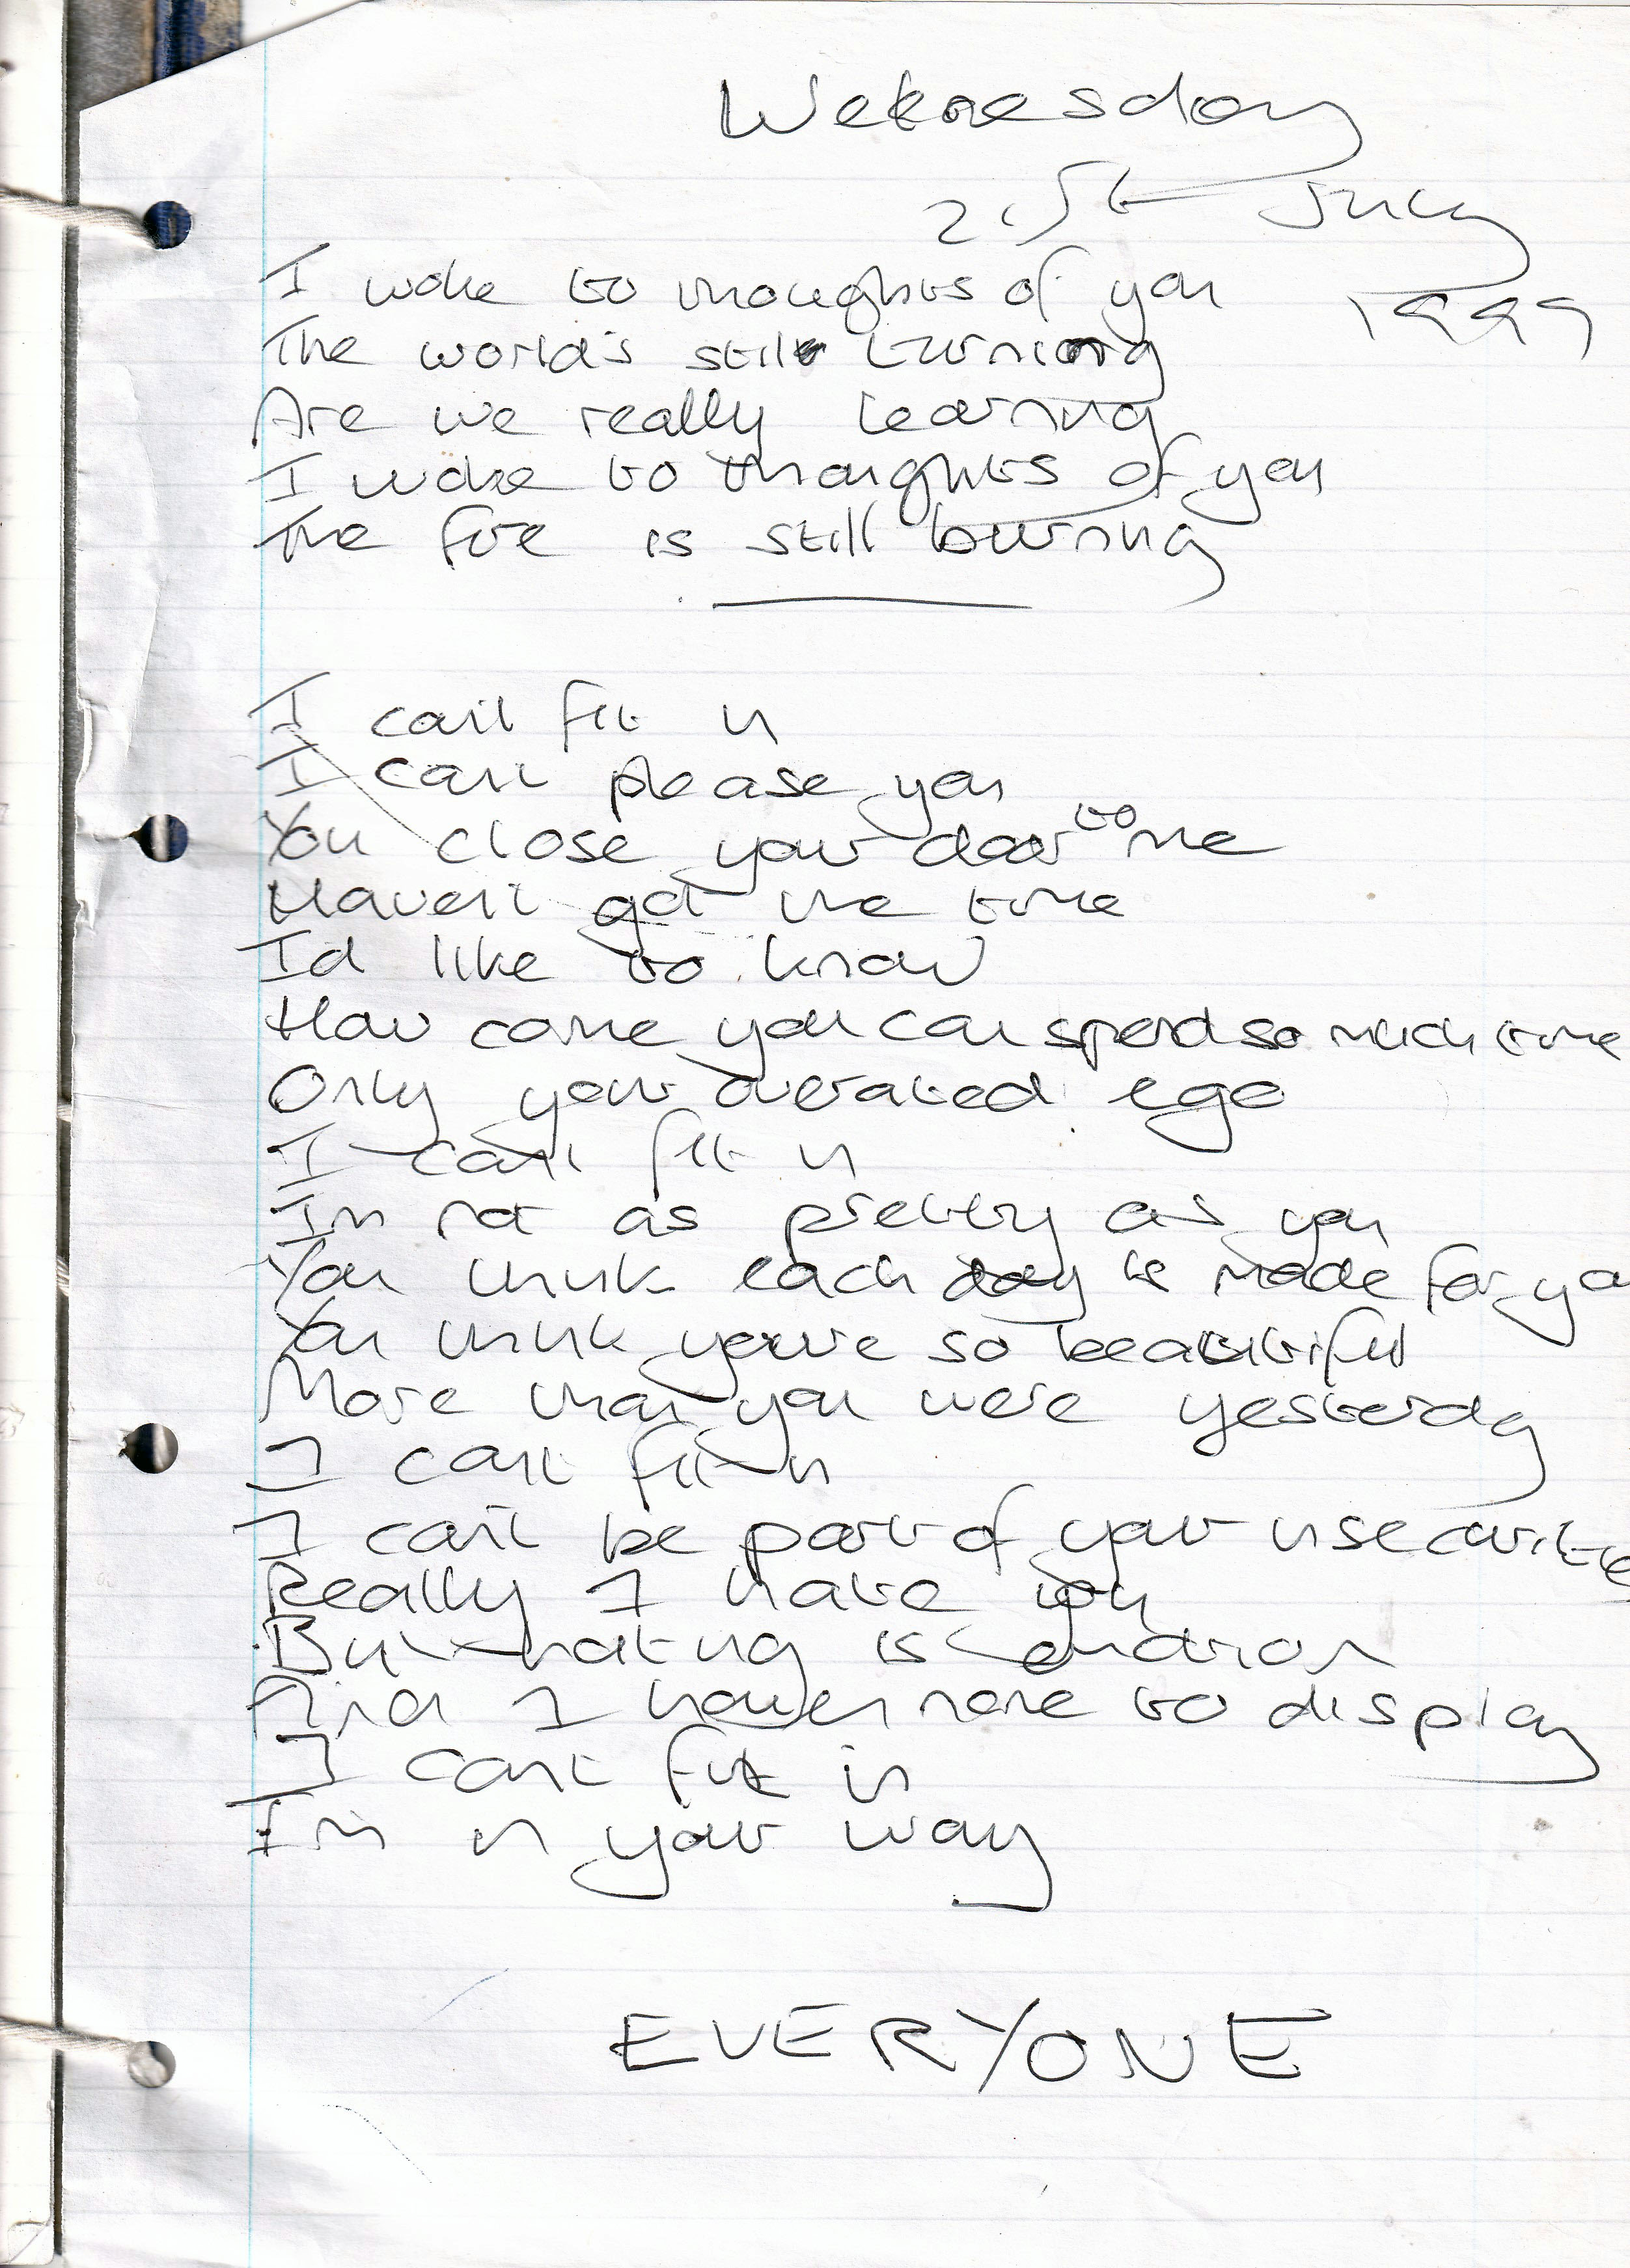 Wednesday
21st July
1999
I woke to thoughts of you
The world's still turning
Are we really learning
I woke to thoughts of you
The fire is still burning
I can't fit in
I can't please you
You close your door to me
Haven't got the time
I'd like to know
How come you can spend so much time
Only your overated ego
I can't fit in
I'm not as pretty as you
You think each day is made for you
You think you're so beautiful
More than you were yesterday
I can't fit in
I can't be part of your insecurities
Really I hate you
But hating is emotion
And I have none to display
I can't fit in
I'm in your way
EVERYONE